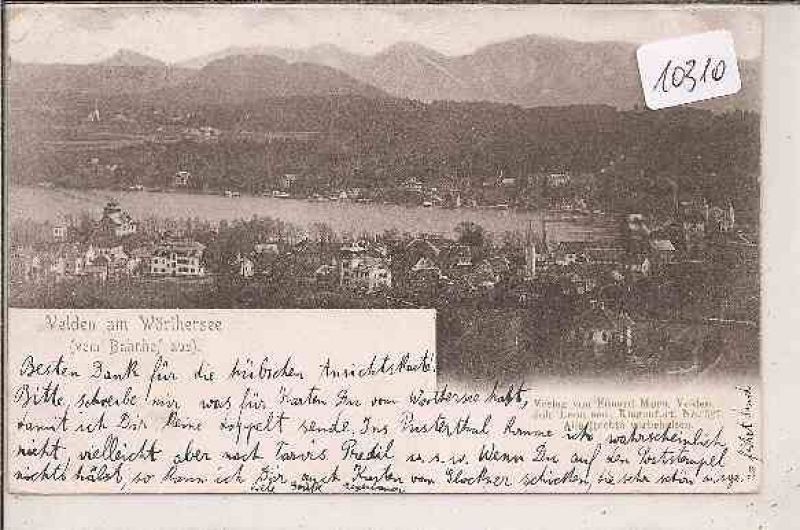 10310
Velden am Wörthersee
(vom Bahnhof aus).
Verlag von Eduard Moro, Velden.
Joh. Leon sen., Klagenfurt. No.
Alle Rechte vorbehalten.
Besten Dank für die hübschen Ansichtskarte!
Bitte, schreibe mir was für Karten Du vom Wörthersee hast,
damit ich Dir keine doppelt sende. Ins Pusterthal komme ich wahrscheinlich
nicht, vielleicht aber nach Tarvis Predil u.s.w. Wenn Du auf den Poststempel
nichts hältst, so kann ich Dir auch Karten vom Glockner schicken, die sehr schön